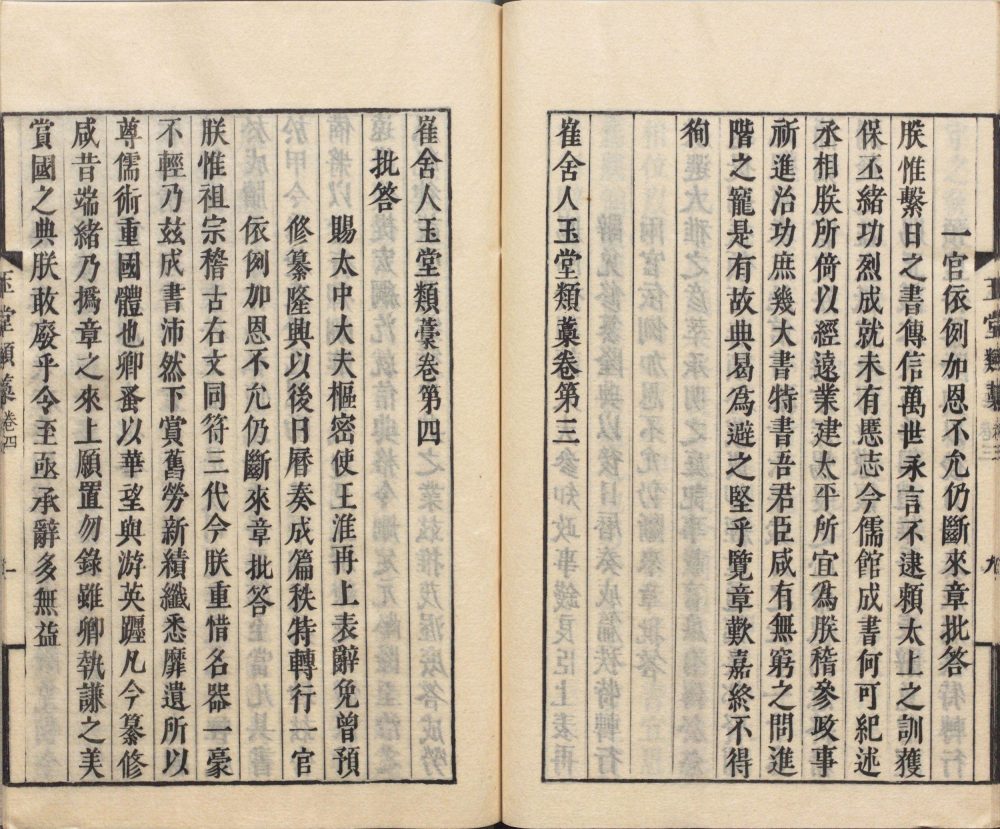 一官依例加恩不允仍斷來章批答
朕惟繫日之書傳信萬世永言不逮頼太上之訓獲
保丕緒功烈成就未有慝志今儒館成書何可紀述
丞相朕所倚以經遠業建太平所宜為朕稽參政事
祈進治功庶幾大書特書吾君臣咸有無窮之問進
階之寵是有故典曷為避之堅乎覽章歎嘉終不得
徇
崔舍人玉堂類藁卷第三
玉堂類藁
卷三
九
崔舍人玉堂類藁卷第四
批答
賜太中大夫樞密使王淮再上表辭免曾預
修纂隆典以後日曆奏成篇秩特轉行一官
依例加恩不允仍斷來章批答
朕惟祖宗稽古右文同符三代今朕重惜名器一豪
不輕乃玆成書沛然下賞舊勞新績纖悉靡遺所以
尊儒術重國體也卿蚤以華望與游英躔凡今纂修
咸昔端緒乃撝章之來上願置勿錄雖卿執謙之美
賞國之典朕敢廢乎令至亟承辭多無益
玉堂類藁
卷四
一